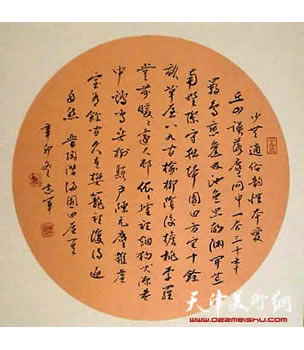 少无適俗韵性本爱
丘山误落尘网中一去三十年
羁鸟恋旧林池鱼思故渊开荒
南野际守拙归园田方宅十余
亩草屋八九间榆柳荫后檐桃李罗
堂前暧暧远人村依依墟里烟狗吠深巷
中鸡鸣桑树颠户庭无尘杂虚
室有馀闲久在樊笼里复得返
自然 晋陶渊明归园田居
辛卯冬
天津美术网
www.022meishu.com